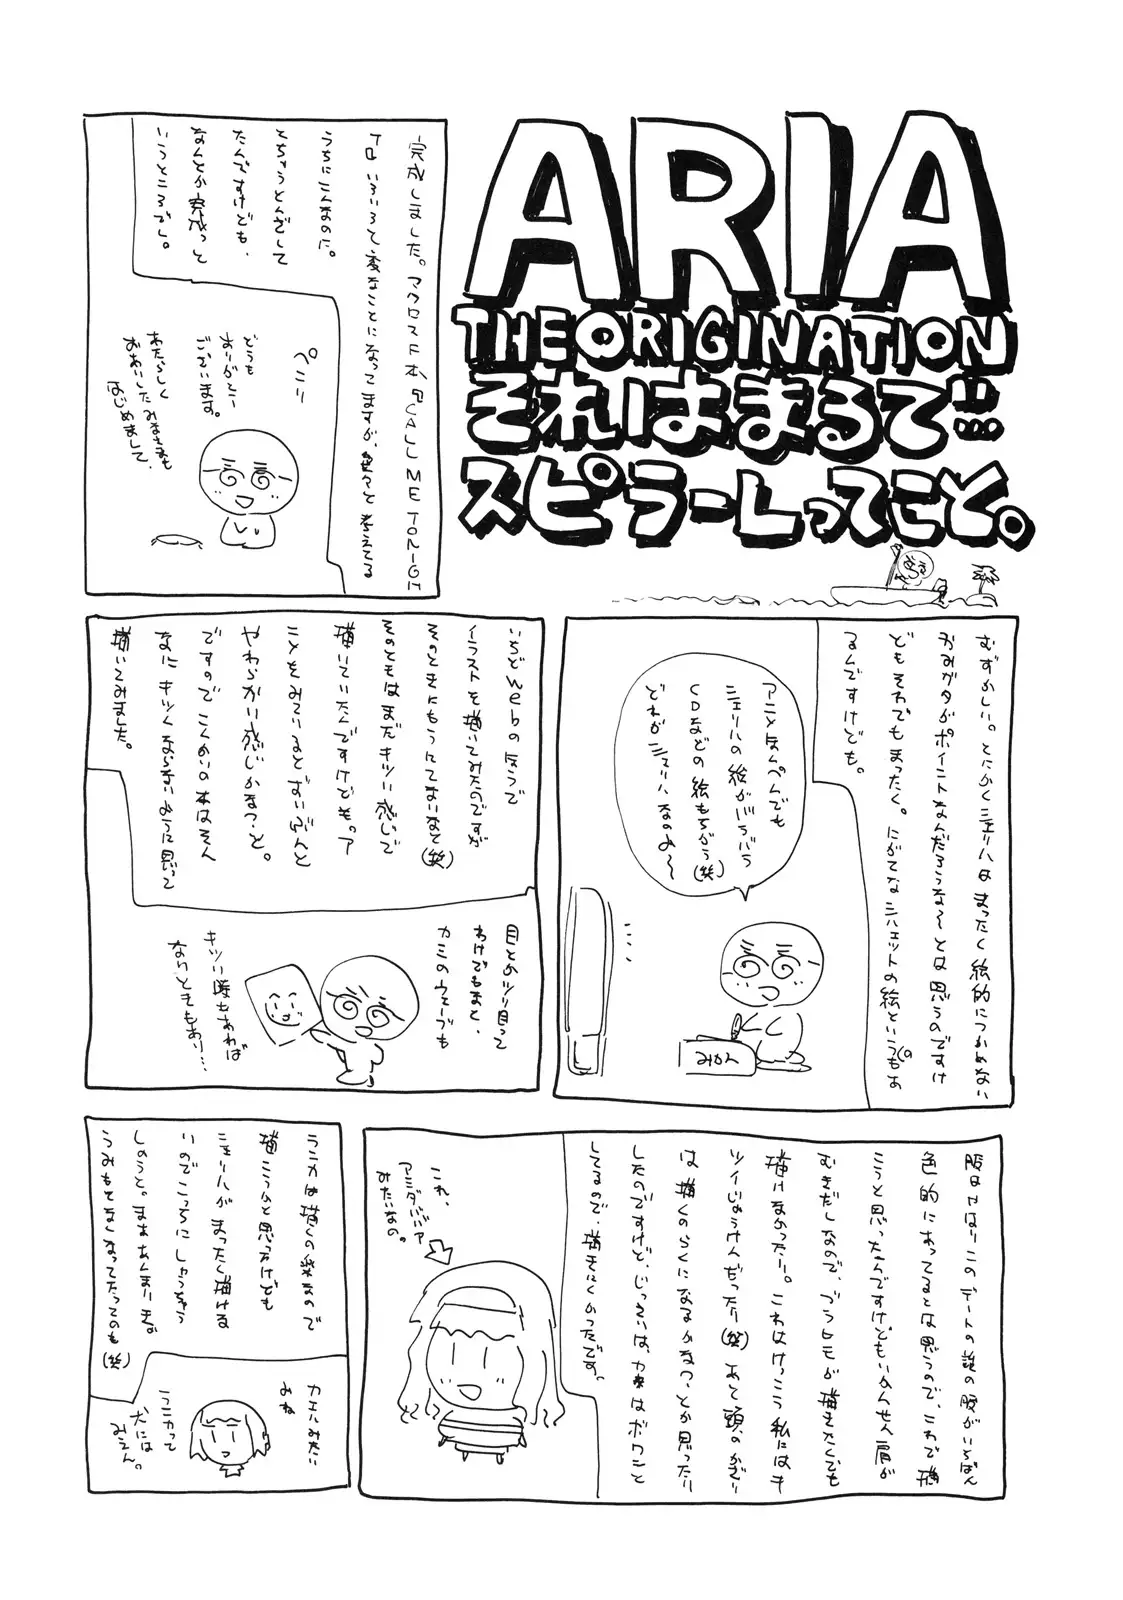 ARIA
THE ORIGINATION
それはまるで…
スピラーレってこと。
完成しました。マクロスF本『CALL ME TONIGH
T』いろいろて変なことになってますが、色々と考えてる
うちにこんなのに。
とちゅうとんざして
たんですけども、
なんとか完成っと
いうところでし。
ペこり
どうも
ありがとう
ございます。
わたらしく
おあいしたみなさまも
はじめまして、
むずかしい。とにかくシェリルはまったく絵的につかめない
かみガタがポイントなんだろうな〜とは思うのですけ
どもそれでもまったく。にがてなシルエットの絵というのもあ
るんですけども。
アニメほんぺんでも
シェリルの絵がバラバラ
CDなどの絵もちがう(笑)
どれがシェリルなのよ〜
みかん
いちどwebのほうで
イラストを描いてみたのですが
そのときにもうにてないなと(笑)
そのときはまだキツい感じで
描いていたんですけども。ア
ニメをみているとずいぶんと
やわらかい感じかなっ、と。
ですのでこんかいの本はそん
なにキツくならないように思って
描いてみました。
目とかツリ目って
わけでもなく、
カミのウェーブも
キツい時もあれば
なんともあり…
服はやはりこのデートの時の服がいちばん
色的にあってるとは思うので、これで描
こうと思ったんですけどもいかんせん肩が
むきだしなので、ブラヒモが描きたくても
描けなかったり。これはけっこう私にはキ
ツイじょうけんだったり(笑)あと頭のかざり
は描くのらくになるかなっ、とか思ったり
したのですけど、じっさいは、カオはボワンと
してるので、描きにくかったです。
これ、
アミダババア
みたいなの。
ランカは描くの楽なので
描こうかと思ったけども
シェリルがまったく描ける
いのでこっちにしちゃう
しゅうと。まああんまりイミな
うみもなくなってたってのも(笑)
カエルみたい
みね
ランカって
犬には
みえん。